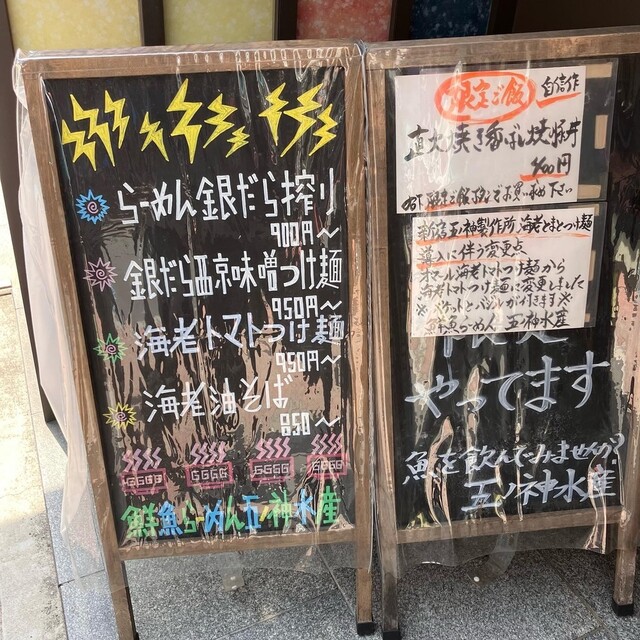 らーめん銀だら搾り
900円〜
銀だら西京味噌つけ麺
950円〜
海老トマトつけ麺
950円〜
海老油そば
850〜
鮮魚らーめん五ノ神水産
限定ご飯
自信作
直火焼き香ばし焼豚丼
400円
限定ご飯
でお買い求め下さい
五ノ神製作所 海老とまとつけ麺
導入に伴う変更点
海老トマトつけ麺から
海老トマトつけ麺に変更しました
※バケットとバジルが付きます※
鮮魚らーめん 五ノ神水産
やってます
魚を飲んでみませんか?
五ノ神水産